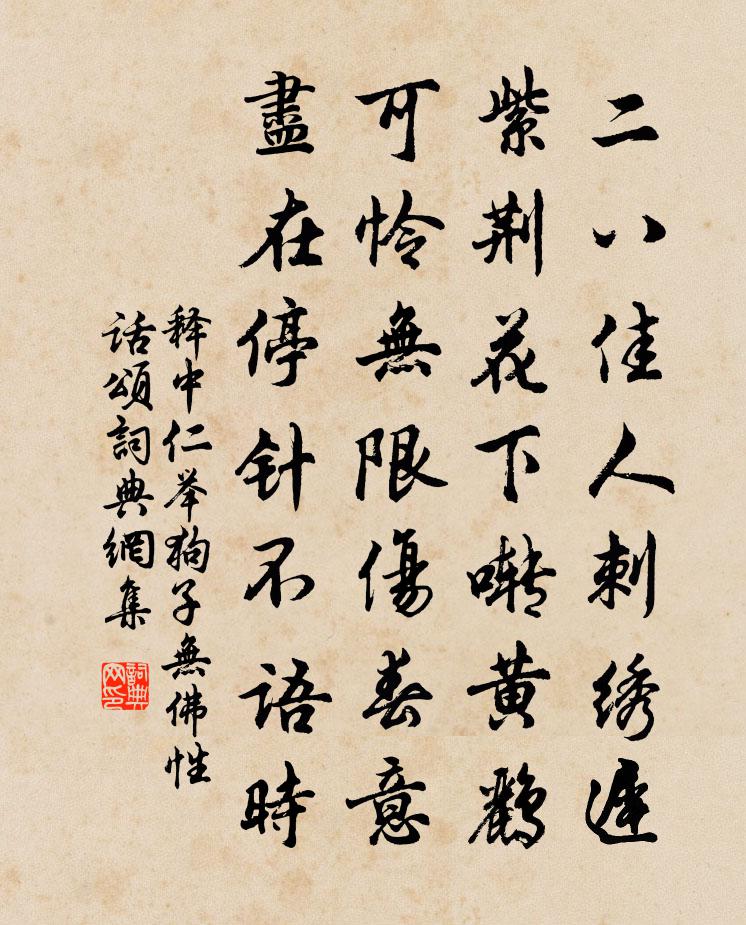 二八佳人刺绣遲
紫荆花下啭黄鸝
可怜無限傷春意
盡在停针不語時
释中仁举狗子無佛性
話頌詞典網集
詞典
网印